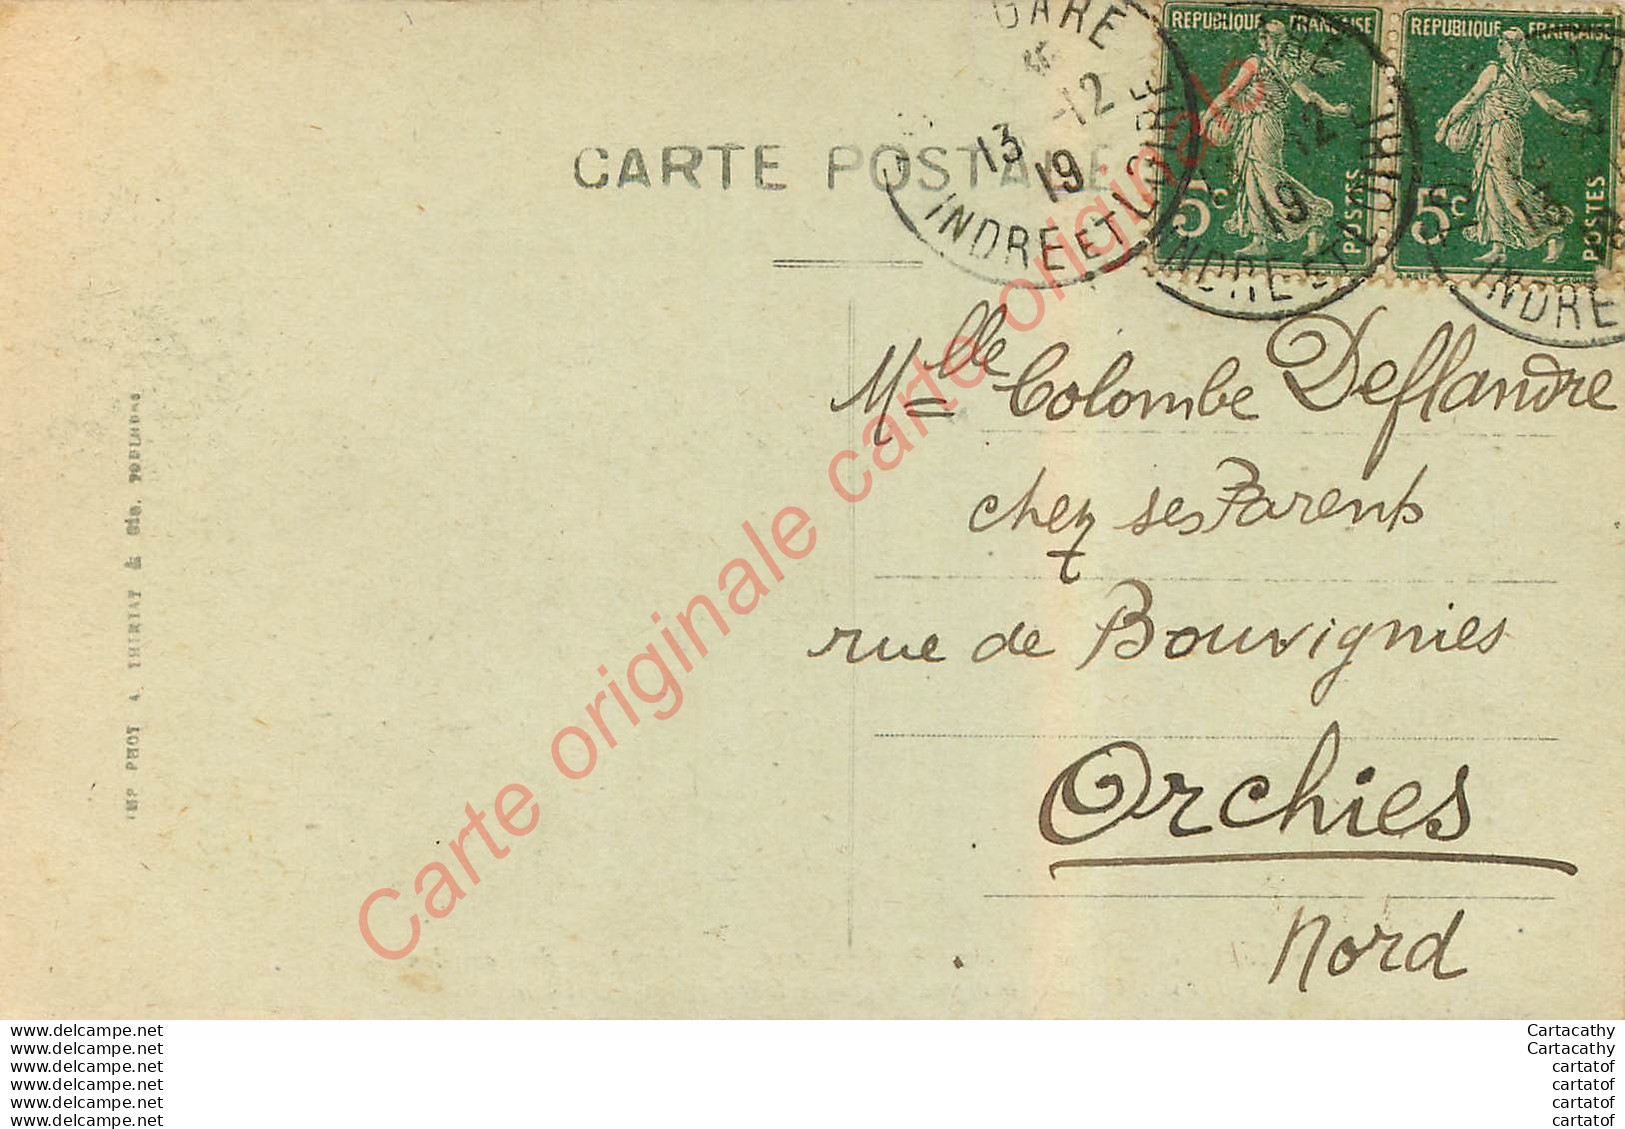 CARTE POSTALE
GARE
13 -12
19
INDRE ET LOIRE
REPUBLIQUE FRANÇAISE
5c
POSTES
REPUBLIQUE FRANÇAISE
5c
POSTES
12
19
INDRE ET LOIRE
13
INDRE
Mlle Colombe Deflandre
chez ses Parents
rue de Bouvignies
Orchies
Nord
IMP PHOT A. THIRIAT & Cie. TOULOUSE
Carte originale carte originale carte originale
www.delcampe.net
www.delcampe.net
www.delcampe.net
www.delcampe.net
www.delcampe.net
www.delcampe.net
Cartacathy
Cartacathy
cartatof
cartatof
cartatof
cartatof